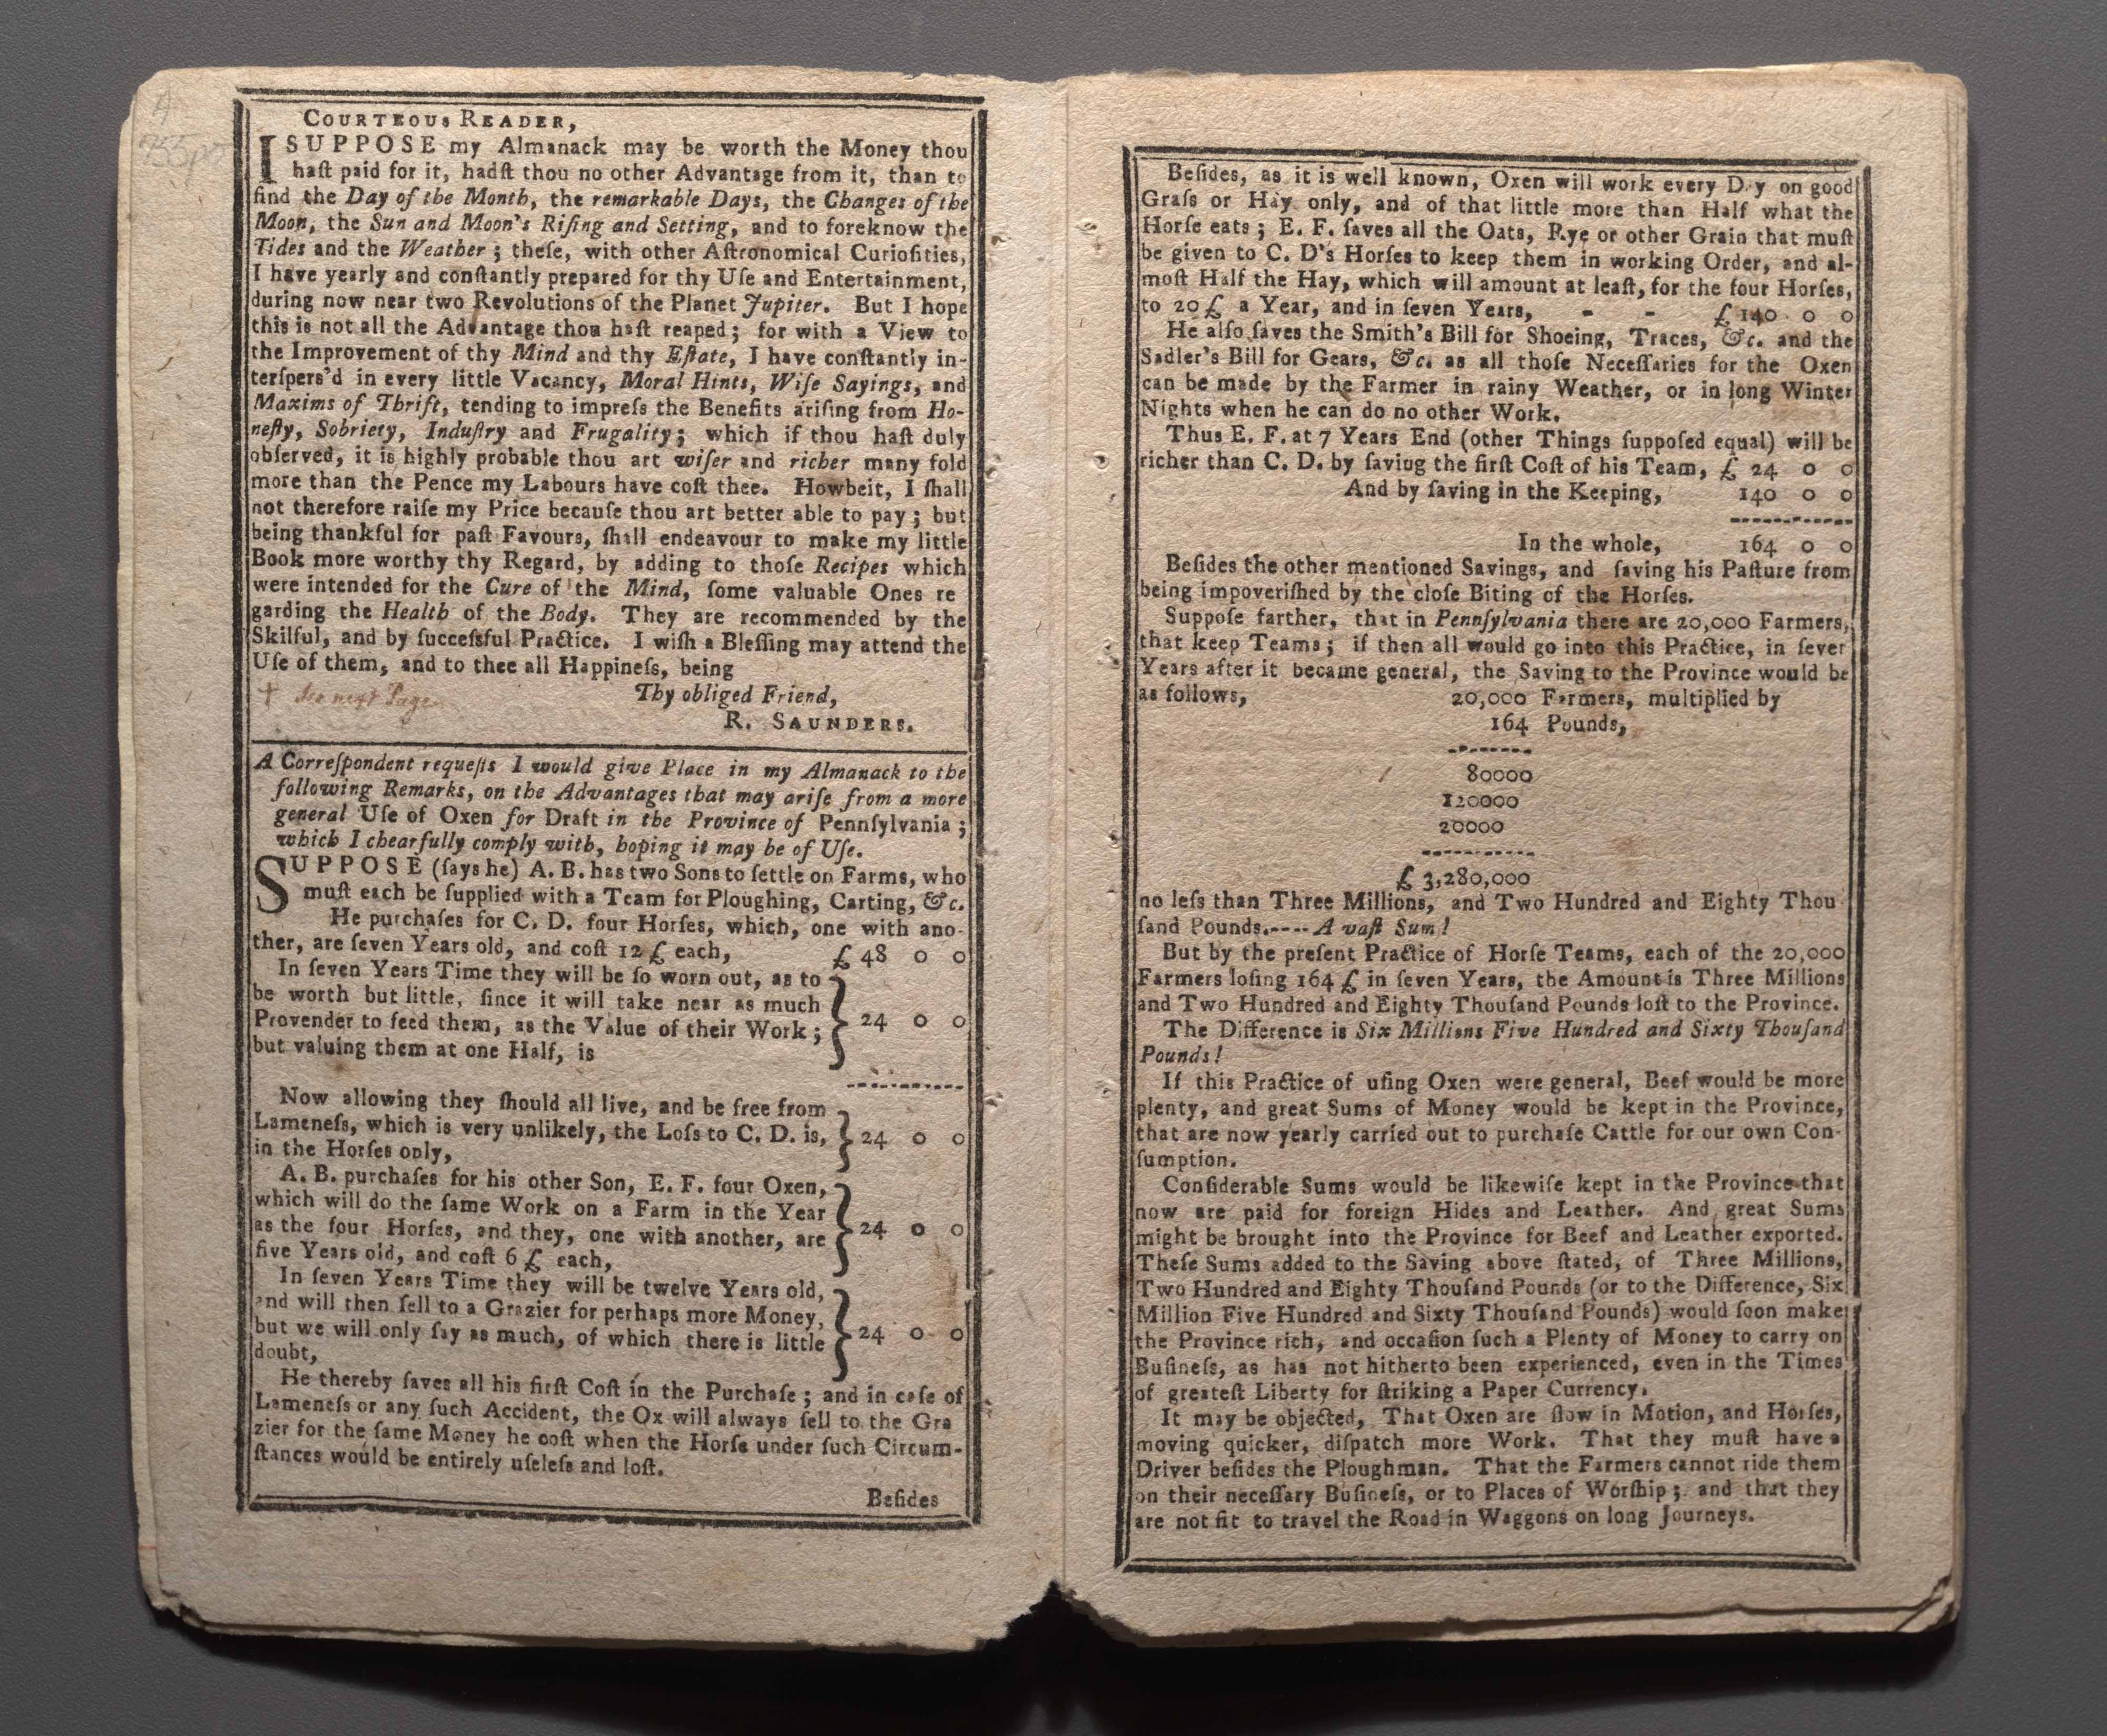 COURTEOUS READER,
I SUPPOSE my Almanack may be worth the Money thou
haſt paid for it, hadſt thou no other Advantage from it, than to
find the Day of the Month, the remarkable Days, the Changes of the
Moon, the Sun and Moon's Riſing and Setting, and to foreknow the
Tides and the Weather; theſe, with other Aſtronomical Curioſities,
I have yearly and conſtantly prepared for thy Uſe and Entertainment,
during now near two Revolutions of the Planet Jupiter. But I hope
this is not all the Advantage thou haſt reaped; for with a View to
the Improvement of thy Mind and thy Eſtate, I have conſtantly in-
terſpers'd in every little Vacancy, Moral Hints, Wiſe Sayings, and
Maxims of Thrift, tending to impreſs the Benefits ariſing from Ho-
neſty, Sobriety, Induſtry and Frugality; which if thou haſt duly
obſerved, it is highly probable thou art wiſer and richer many fold
more than the Pence my Labours have coſt thee. Howbeit, I ſhall
not therefore raiſe my Price becauſe thou art better able to pay; but
being thankful for paſt Favours, ſhall endeavour to make my little
Book more worthy thy Regard, by adding to thoſe Recipes which
were intended for the Cure of the Mind, ſome valuable Ones re
garding the Health of the Body. They are recommended by the
Skilful, and by ſucceſsful Practice. I wiſh a Bleſſing may attend the
Uſe of them, and to thee all Happineſs, being
Thy obliged Friend,
† See next Page
R. SAUNDERS.
A Correſpondent requeſts I would give Place in my Almanack to the
following Remarks, on the Advantages that may ariſe from a more
general Uſe of Oxen for Draft in the Province of Pennſylvania;
which I chearfully comply with, hoping it may be of Uſe.
SUPPOSE (ſays he) A. B. has two Sons to ſettle on Farms, who
muſt each be ſupplied with a Team for Ploughing, Carting, &c.
He purchaſes for C. D. four Horſes, which, one with ano-
ther, are ſeven Years old, and coſt 12 £ each, £ 48 0 0
In ſeven Years Time they will be ſo worn out, as to
be worth but little, ſince it will take near as much
Provender to feed them, as the Value of their Work; } 24 0 0
but valuing them at one Half, is
Now allowing they ſhould all live, and be free from
Lameneſs, which is very unlikely, the Loſs to C. D. is, } 24 0 0
in the Horſes only,
A. B. purchaſes for his other Son, E. F. four Oxen,
which will do the ſame Work on a Farm in the Year
as the four Horſes, and they, one with another, are } 24 0 0
five Years old, and coſt 6 £ each,
In ſeven Years Time they will be twelve Years old,
and will then ſell to a Grazier for perhaps more Money,
but we will only ſay as much, of which there is little } 24 0 0
doubt,
He thereby ſaves all his firſt Coſt in the Purchaſe; and in caſe of
Lameneſs or any ſuch Accident, the Ox will always ſell to the Gra
zier for the ſame Money he coſt when the Horſe under ſuch Circum-
ſtances would be entirely uſeleſs and loſt.
Beſides
Beſides, as it is well known, Oxen will work every D y on good
Graſs or Hay only, and of that little more than Half what the
Horſe eats; E. F. ſaves all the Oats, Rye or other Grain that muſt
be given to C. D's Horſes to keep them in working Order, and al-
moſt Half the Hay, which will amount at leaſt, for the four Horſes,
to 20 £ a Year, and in ſeven Years, - - £ 140 0 0
He alſo ſaves the Smith's Bill for Shoeing, Traces, &c. and the
Sadler's Bill for Gears, &c. as all thoſe Neceſſaries for the Oxen
can be made by the Farmer in rainy Weather, or in long Winter
Nights when he can do no other Work.
Thus E. F. at 7 Years End (other Things ſuppoſed equal) will be
richer than C. D. by ſaviug the firſt Coſt of his Team, £ 24 0 0
And by ſaving in the Keeping, 140 0 0
In the whole, 164 0 0
Beſides the other mentioned Savings, and ſaving his Paſture from
being impoveriſhed by the cloſe Biting of the Horſes.
Suppoſe farther, that in Pennſylvania there are 20,000 Farmers,
that keep Teams; if then all would go into this Practice, in ſever
Years after it became general, the Saving to the Province would be
as follows, 20,000 Farmers, multiplied by
164 Pounds,
80000
120000
20000
£ 3,280,000
no leſs than Three Millions, and Two Hundred and Eighty Thou
ſand Pounds.---- A vaſt Sum!
But by the preſent Practice of Horſe Teams, each of the 20,000
Farmers loſing 164 £ in ſeven Years, the Amount is Three Millions
and Two Hundred and Eighty Thouſand Pounds loſt to the Province.
The Difference is Six Millions Five Hundred and Sixty Thouſand
Pounds!
If this Practice of uſing Oxen were general, Beef would be more
plenty, and great Sums of Money would be kept in the Province,
that are now yearly carried out to purchaſe Cattle for our own Con-
ſumption.
Conſiderable Sums would be likewiſe kept in the Province that
now are paid for foreign Hides and Leather. And great Sums
might be brought into the Province for Beef and Leather exported.
Theſe Sums added to the Saving above ſtated, of Three Millions,
Two Hundred and Eighty Thouſand Pounds (or to the Difference, Six
Million Five Hundred and Sixty Thouſand Pounds) would ſoon make
the Province rich, and occaſion ſuch a Plenty of Money to carry on
Buſineſs, as has not hitherto been experienced, even in the Times
of greateſt Liberty for ſtriking a Paper Currency.
It may be objected, That Oxen are ſlow in Motion, and Horſes,
moving quicker, diſpatch more Work. That they muſt have a
Driver beſides the Ploughman. That the Farmers cannot ride them
on their neceſſary Buſineſs, or to Places of Worſhip; and that they
are not fit to travel the Road in Waggons on long Journeys.